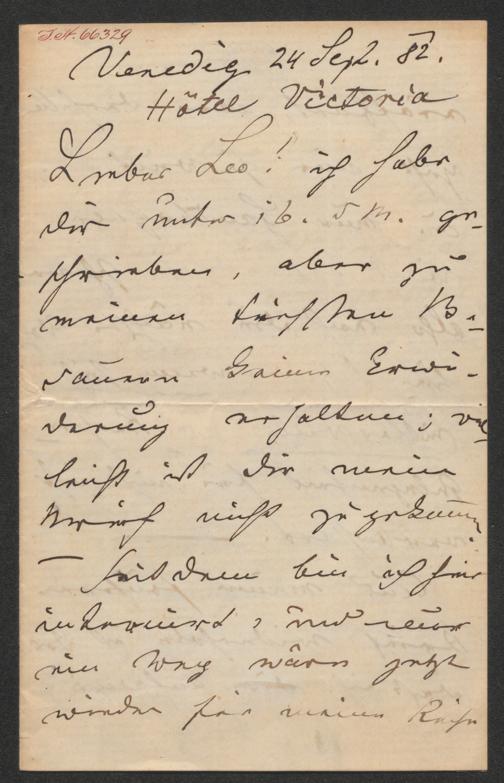 I.N. 66329
Venedig 24 Sept. 82.
Hôtel Victoria
Lieber Leo! ich habe
dir unter 16. d M. ge-
schrieben, aber zu
meinem tiefsten Be-
dauern keine Erwi-
derung erhalten; viel
leicht ist dir mein
Brief nicht zugekommen
— Seitdem bin ich hier
interniert, und nur
ein Weg wäre jetzt
wieder für meine Reise